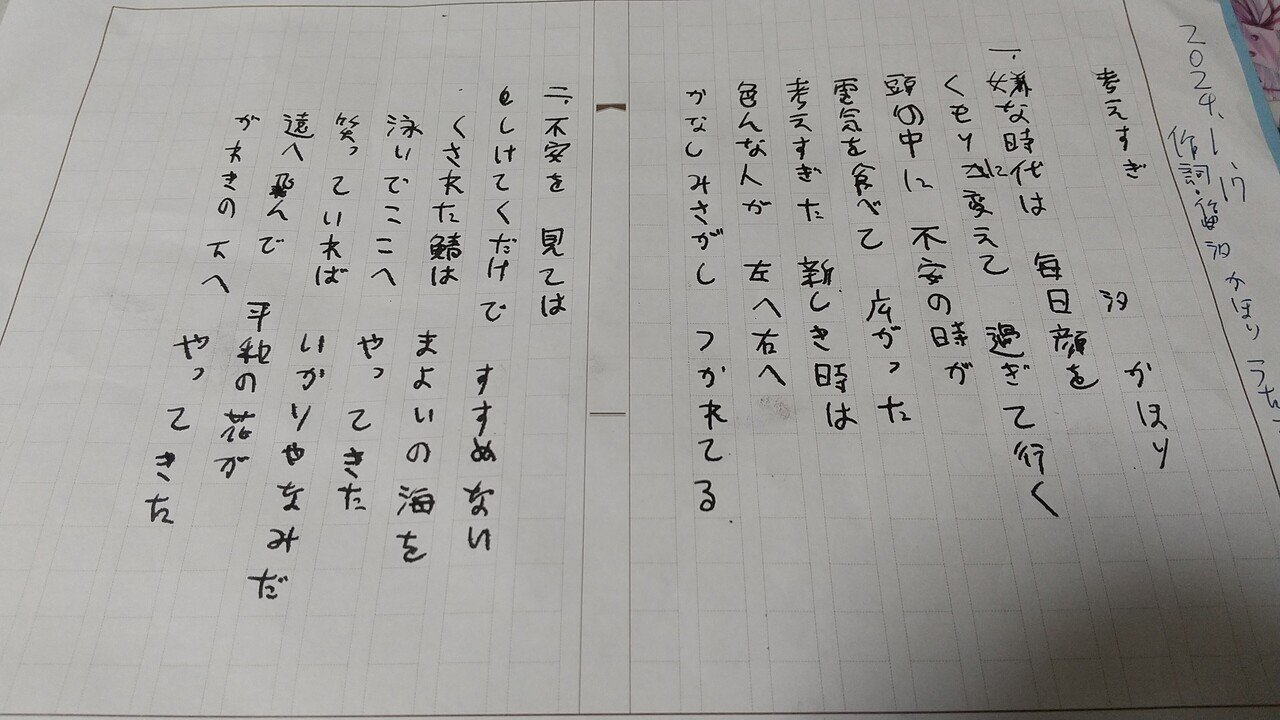 2024.1.17
作詞・作曲 汐 かほり うた
考えすぎ
汐 かほり
一、嫌な時代は 毎日顔を
くもりに変えて 過ぎて行く
頭の中に 不安の時が
電気を食べて 広がった
考えすぎた 新しき時は
色んな人が 左へ右へ
かなしみさがし つかれてる
二、不安を 見ては
しけてくだけで すすめない
くされた鯖は まよいの海を
泳いでここへ やってきた
笑っていれば いかりやなみだ
遠へ飛んで 平和の花が
がれきの下へ やってきた